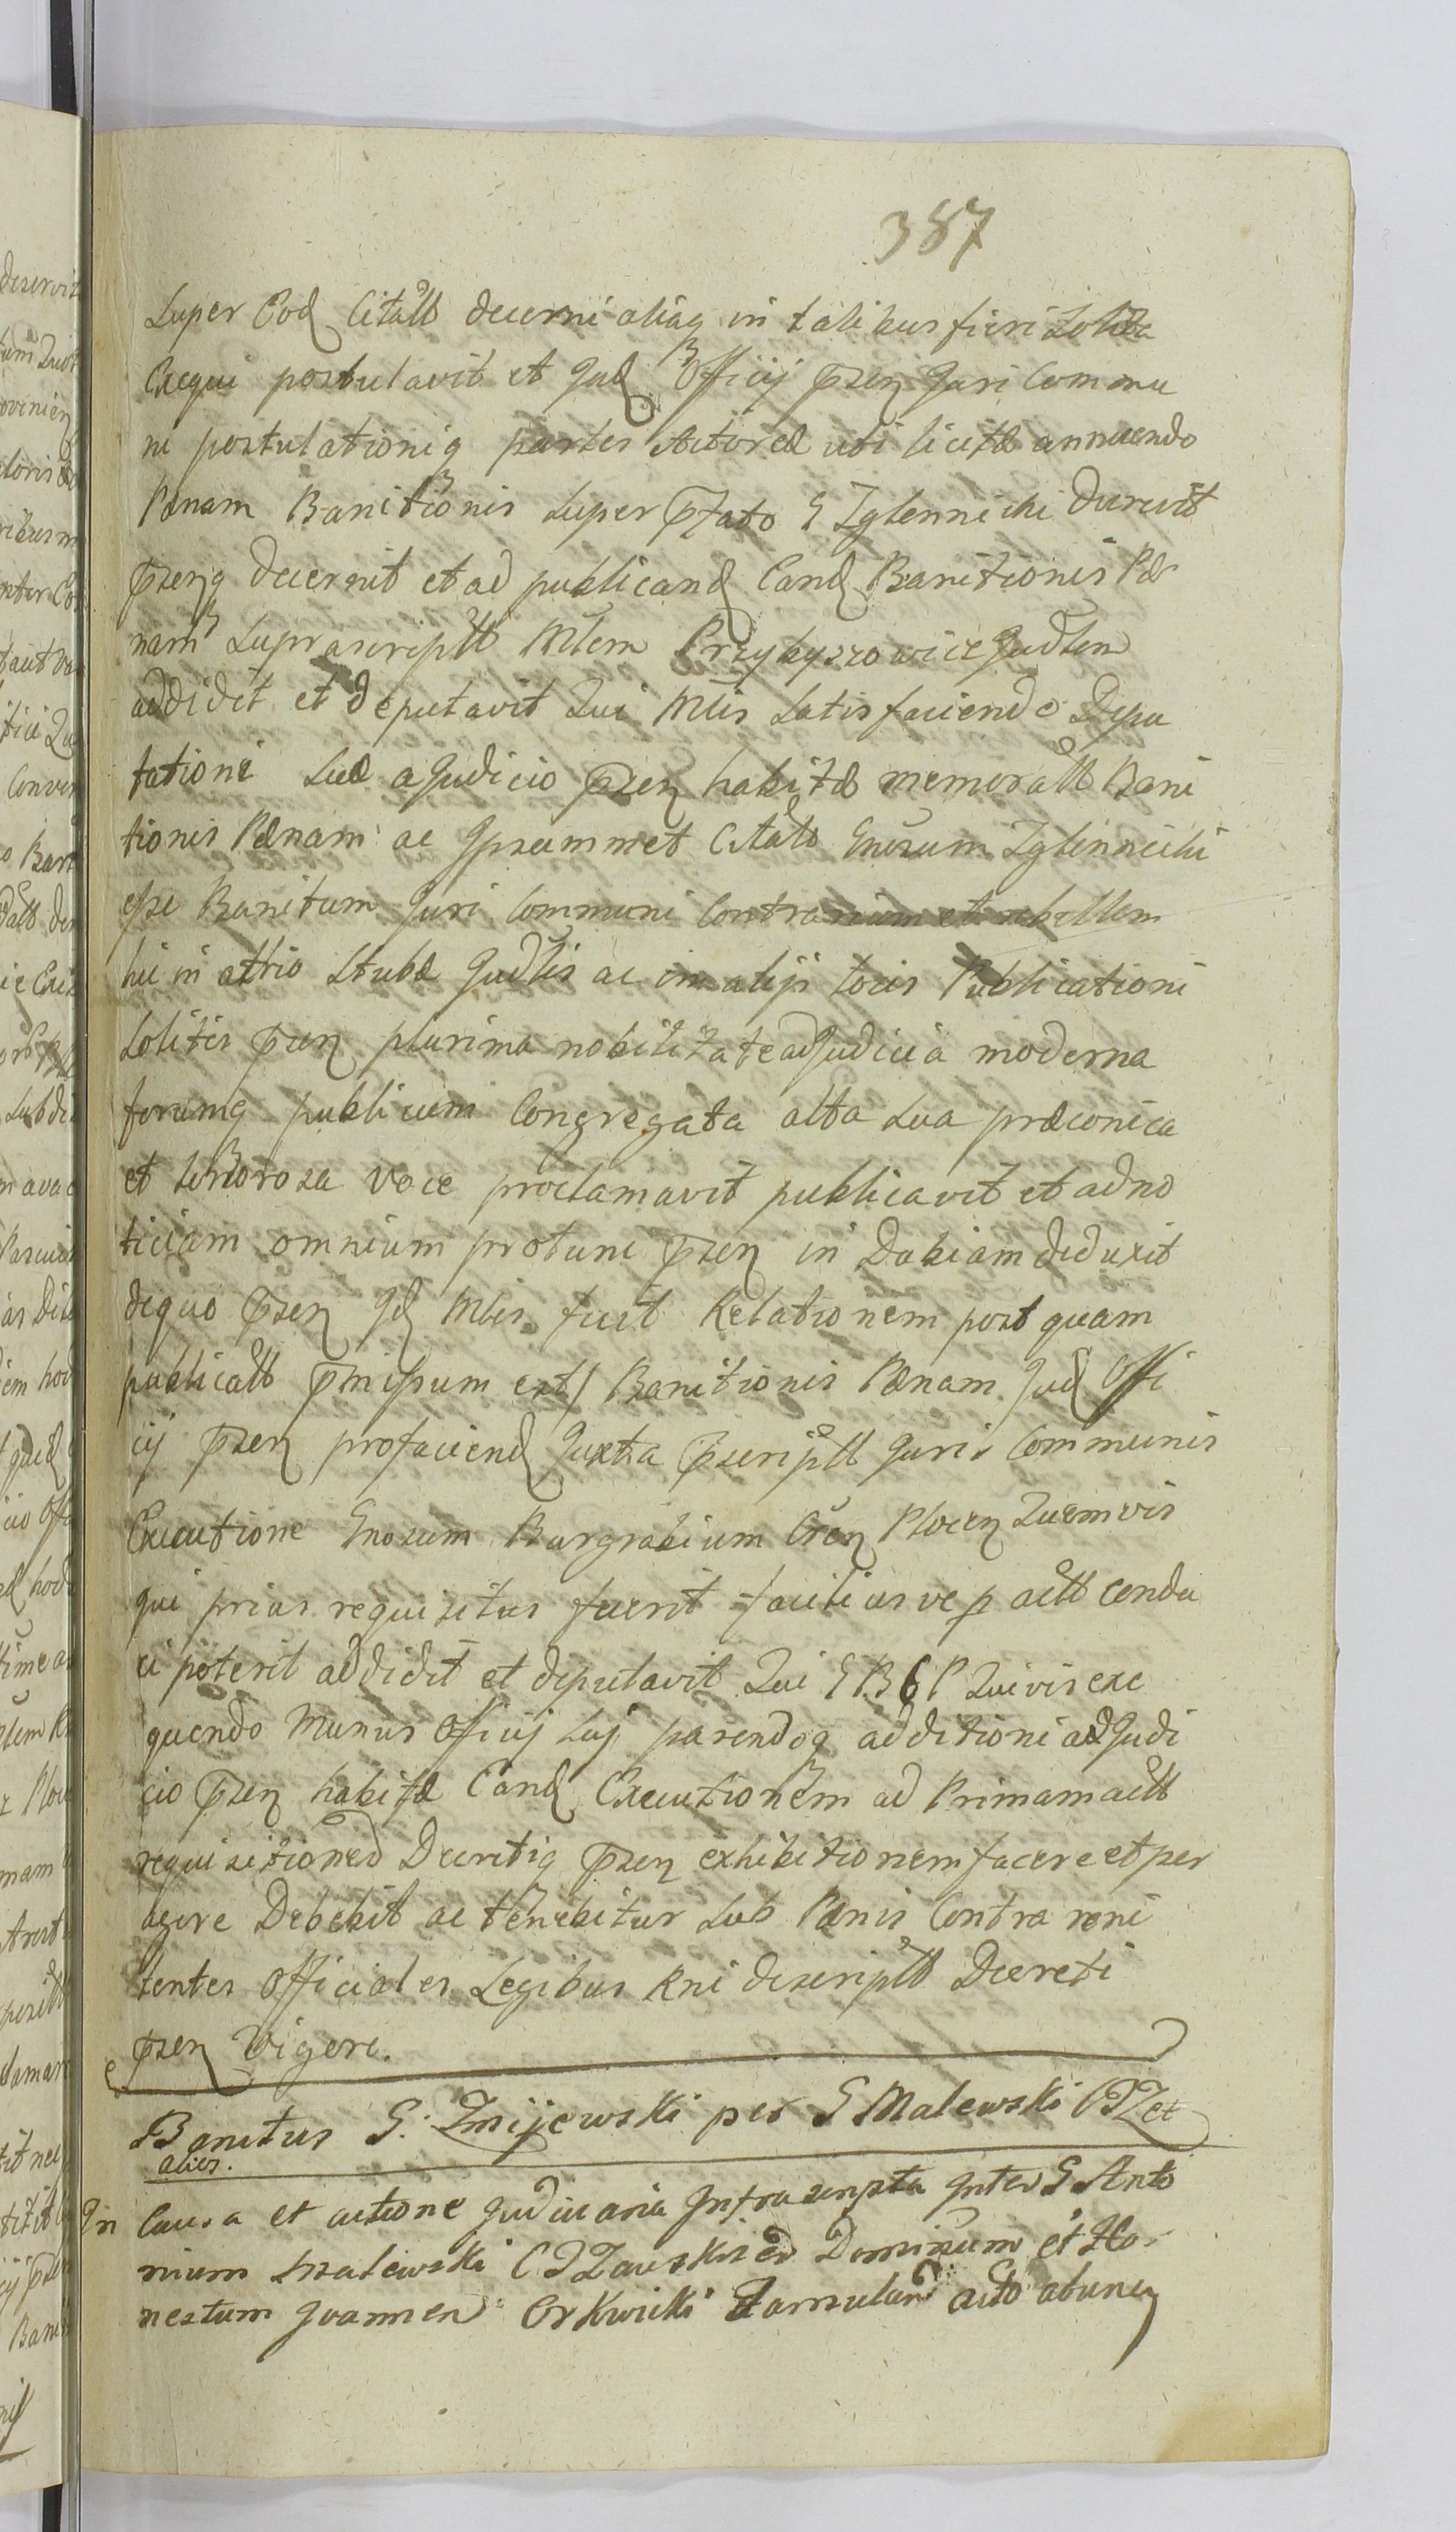 387
Super Eod Citatt decerni aliaq in talibus fieri Solita
Exequi postulavit et Jud Officij prsen Juri Commu
ni postulationiq partis Actoreæ uti licitæ annuendo
Pænam Banitionis Super prfato G Zglennicki Durevit
prsenq decernit et ad publicand Eand Banitionis Pæ
nam Suprascriptt Mlem Przybyszowicz Judlem
addidit et deputavit Qui Mlis Satisfaciendo Depu
tationi Suæ a Judicio prsen habitæ memoratt Bani
tionis Pænam ac Ipsummet Citato Gnrsum Zglinnicki
esse Banitum Juri Communi Contrarium et rebellem
hic in atrio Stubæ Judlis ac in alijs locis Publicationi
Solitis prsen plurima nobilitate ad Judicia moderna
forumq publicum Congregata alta Sua præconica
et Sonorosa voce proclamavit publicavit et ad no
ticiam omnium protunc prsen in Dubiam deduxit
dequo prsen Id Mlis fecit Relationem post quam
publicatt prmissum est / Banitionis Pænam Jud Offi
cij prsen profaciend Juxta prscriptt Juris Communis
Executione Gnosum Burgrabium Cren Plocen Quemvis
qui prius requisitus fuerit faciliusve p actt condu
ci poterit addidit et deputavit Qui G B C P Quivis exe
quendo Munus Officij Sui parendoq additioni a Judi
cio prsen habitæ Eand Executionem ad Primam actt
requisitionem Decretiq prsen exhibitionem facere et per
agere Debebit ac tenebitur Sub Pænis Contra reni
tentes Officiales Legibus Rni descriptt Decreti
prsen Vigore.
Banitus G: Zmijewski per G Malewski CPZ et
alios.
In Causa et actione Judiciaria Infrascripta Inter G Anto
nium Malewski CPZawskrz Dominum et Ho
nestum Joannem Orkwicki Famulum acto abunen